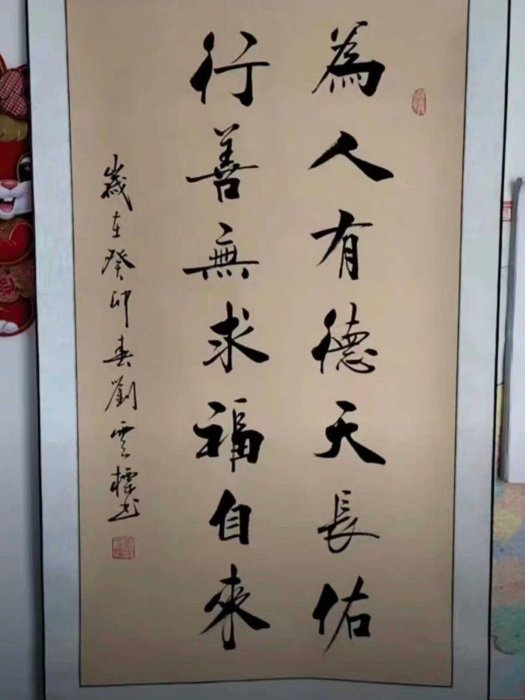 為人有德天長佑
行善無求福自來
歲在癸卯春劉雲標书